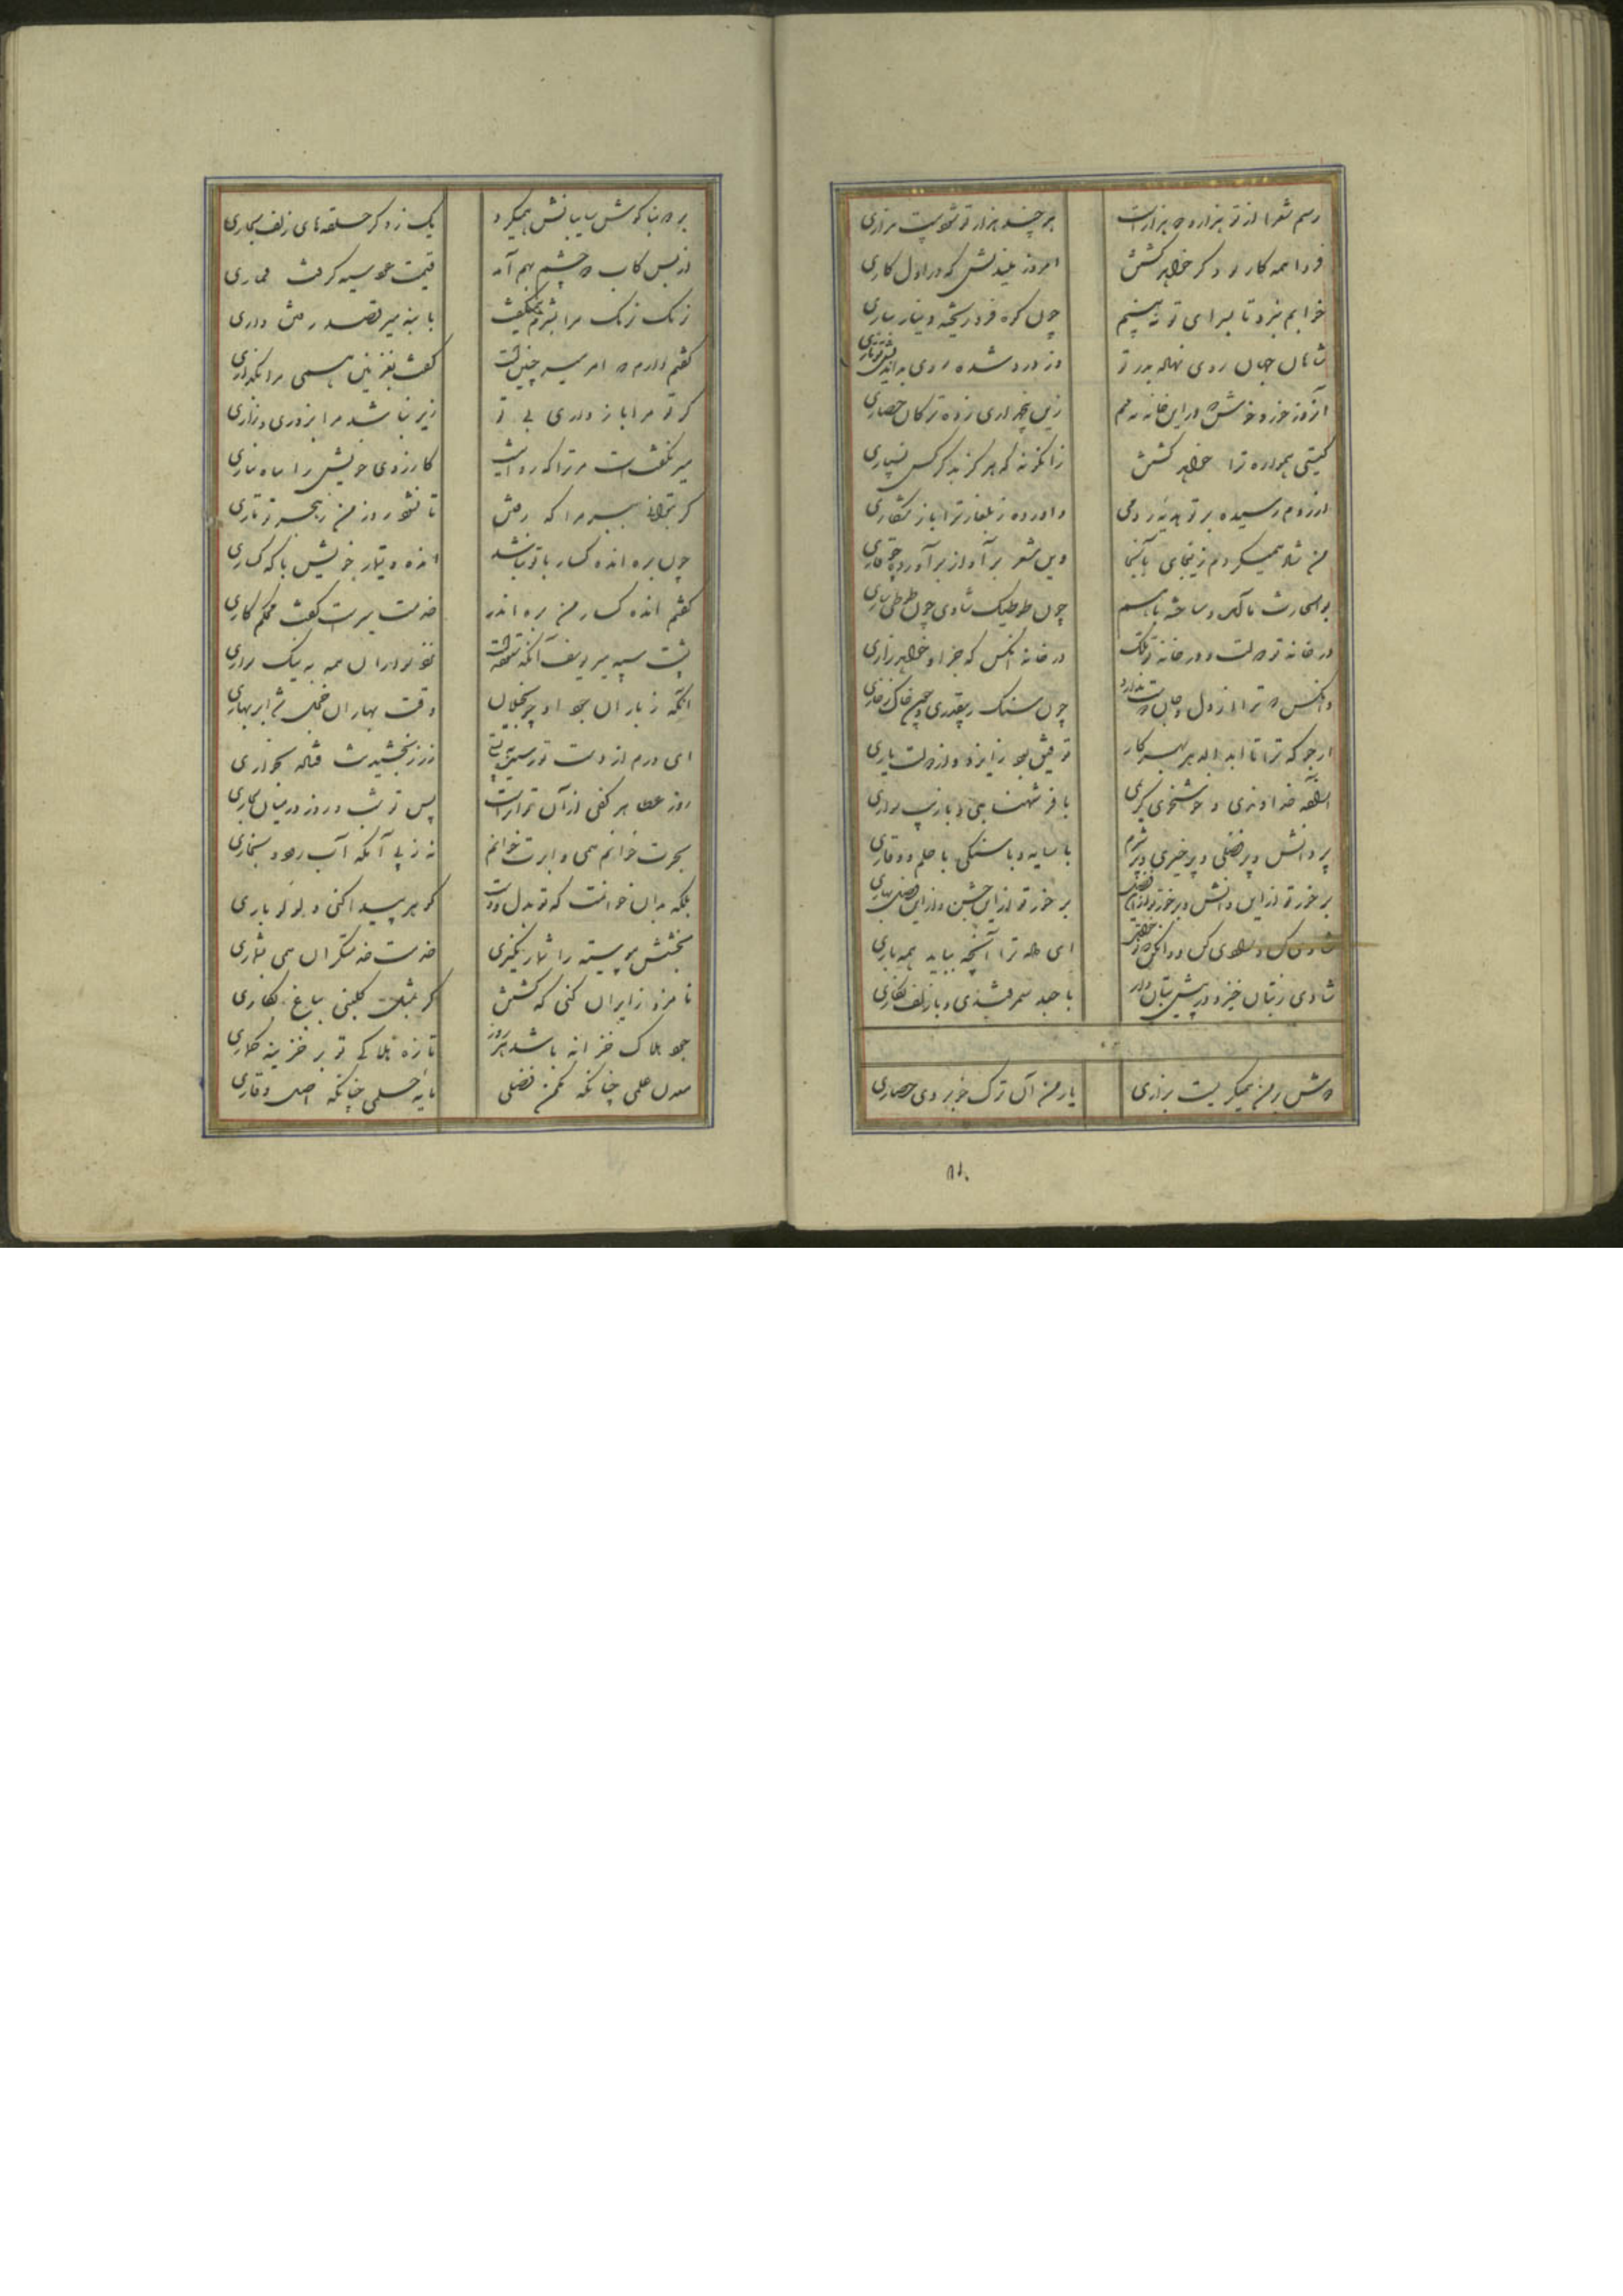 رسم شعرا از تو هزار و دو هزار است
هر چند هزار تو شود بیست هزاری
فردا همه کار دگر خواهد کشتن
امروز بلیدنش که در اول کاری
خوابم نبرد تا بسرای تو نبینم
چون کوه فرو ریخته دینار بناری
شاهان جهان روی نهاده بدر تو
وز درد شده روی بداندیش تو
آنروز خورد خوش در این خانه
زین پنجره زده ترکان حصاری
گیتی همواره ترا خواهد گشتن
زانگونه که هرگز بدگر کس نسپاری
آرزوم رسیده بر تو هدیه رومی
واورده ز بلغار ترا باز شکاری
من شاد همیگردم زینجای بآنجا
وین شعر بر آواز برآورده چو قاری
چون طوطیک شاری
در خانه تو دولت و در خانه تو ملک
در خانه آنکس که جز او خواهد زاری
وانکس که ترا از دل و جان دوست ندارد
چون سنگ ز بیقدری و چون خاک ز خواری
ارجو که ترا تا ابد اندر همه کار
توفیق بود ز ایزد و از دولت یاری
زیرا که خداوندی و خوشخوی کریمی
با فر شهنشاهی و با زیب سواری
پر دانش و پر فضلی و پر خیری و پر شرم
با سایه و با سنگی با حلم و وقاری
برخور تو از این دانش و برخور تو از این فضل
برخور تو از این جشن و از این فصل بهاری
شادی کن و شادی کن و آن کن که تو خواهی
ای شه ترا آنچه بباید همه داری
شادی ز بتان خیزد در پیش بتان دار
با جعد سمرقندی و با زلف بخاری
دوش ز من همیگریست بزاری
یار من آن ترک خوبروی حصاری
۸۱۰
بر دو بناگوش سایبانش همیکرد
یک ز دگر حلقه‌های زلف بخاری
از بس کاب دو چشم بهم آمد
قیمت عود سیه گرفت قماری
زنک زنک مرا بشرم همیگفت
با بنه میر قصد رفتن داری
گفتم دارم که امر میر چنین است
گفت بغزنین همی مرا بگذاری
گر تو مرا باز داری بی تو
زیر نباشد مرا بزوری و زاری
میر نگفت است مر ترا که روا نیست
کارزوی خویش را براه بیاری
گر بتوانی ببر مرا که رفتن
تا نشود روز من ز هجر تو تاری
چون بره انده گسار با تو نباشد
انده و تیمار خویش با که گساری
گفتم انده گسار من بره اندر
خدمت میر است گفت محکم کاری
پشت سپه میر یوسف آنکه نشسته است
نزد برادران همه به نیک براری
آنکه ز باران جود او چو بخیلان
وقت بهاران خجل شد ابر بهاری
ای درم از دست تو رسیده بپستی
زر ز بخشیدنت فتاده بخواری
روز عطا هر کفی از آن تو ابر است
پس تو شب و روز در میان بخاری
بحرت خوانم همی و ابرت خوانم
نه ز پی آنکه آب رود و بخاری
بلکه بدان خوانمت که تو بدل و دست
گوهر پیدا کنی و لؤلؤ باری
بخشش پیوسته را شمار نگیری
خدمت خدمتگران همی بشماری
نامزد زایران کنی که کشش
گر بمثل گلبنی بباغ بکاری
جود هلاک خزانه باشد و هر روز
تازه هلاکی تو بر خزینه گماری
معدن علمی چنانکه مکمن فضلی
مایه حلمی چنانکه اصل وقاری